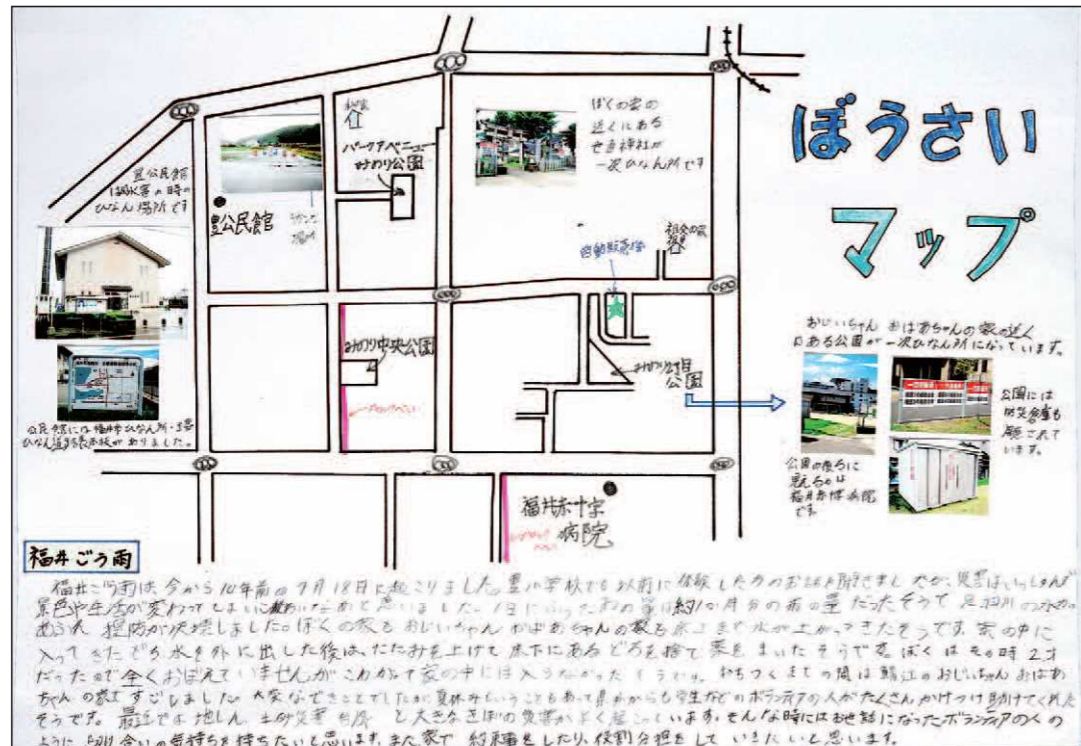 ぼうさい
マップ
ぼくの家の
近くにある
世直神社が
一次ひなん所です
パークアベニュー
みのり公園
豊公民館
は風水害の時の
ひなん場所です
豊公民館
自動販売機
みのり中央公園
みのり2丁目
公園
公民館には福井市ひなん所・土砂
ひなん道路表示板がありました。
おじいちゃん おばあちゃんの家の近く
にある公園が一次ひなん所になっています。
公園には
防災倉庫も
用意されて
います。
公園の後ろに
見えるのは
福井赤十字病院
です。
福井赤十字
病院
福井ごう雨
福井ごう雨は、今から10年前の7月18日に起こりました。豊小学校でも以前に体験した方のお話を聞きましたが、災害はいっしゅんで
景色や生活が変わってしまい怖いなあと思いました。1日にふった雨の量は約1か月分の雨の量だったそうで足羽川の水が
あふれ 堤防が決壊しました。ぼくの家も おじいちゃん おばあちゃんの家も床上まで水が上がってきたそうです。家の中に
入ってきたどろ水を外に出した後は、たたみを上げて床下にあるどろを捨て薬をまいたそうです。ぼくはその時2才
だったので全くおぼえていませんがこわがって家の中には入らなかったそうです。おちつくまでの間は鯖江のおじいちゃんおばあ
ちゃんの家ですごしました。大変なできごとでしたが夏休みということもあって県外からも学生などのボランティアの人がたくさんかけつけ助けてくれた
そうです。最近でも地しん 土砂災害 台風 と大きなきぼの災害がよく起こっています。そんな時にはお世話になったボランティアの人の
ように助け合いの気持ちを持ちたいと思います。また家で 約束事をしたり、役割分担をして いきたいと思います。